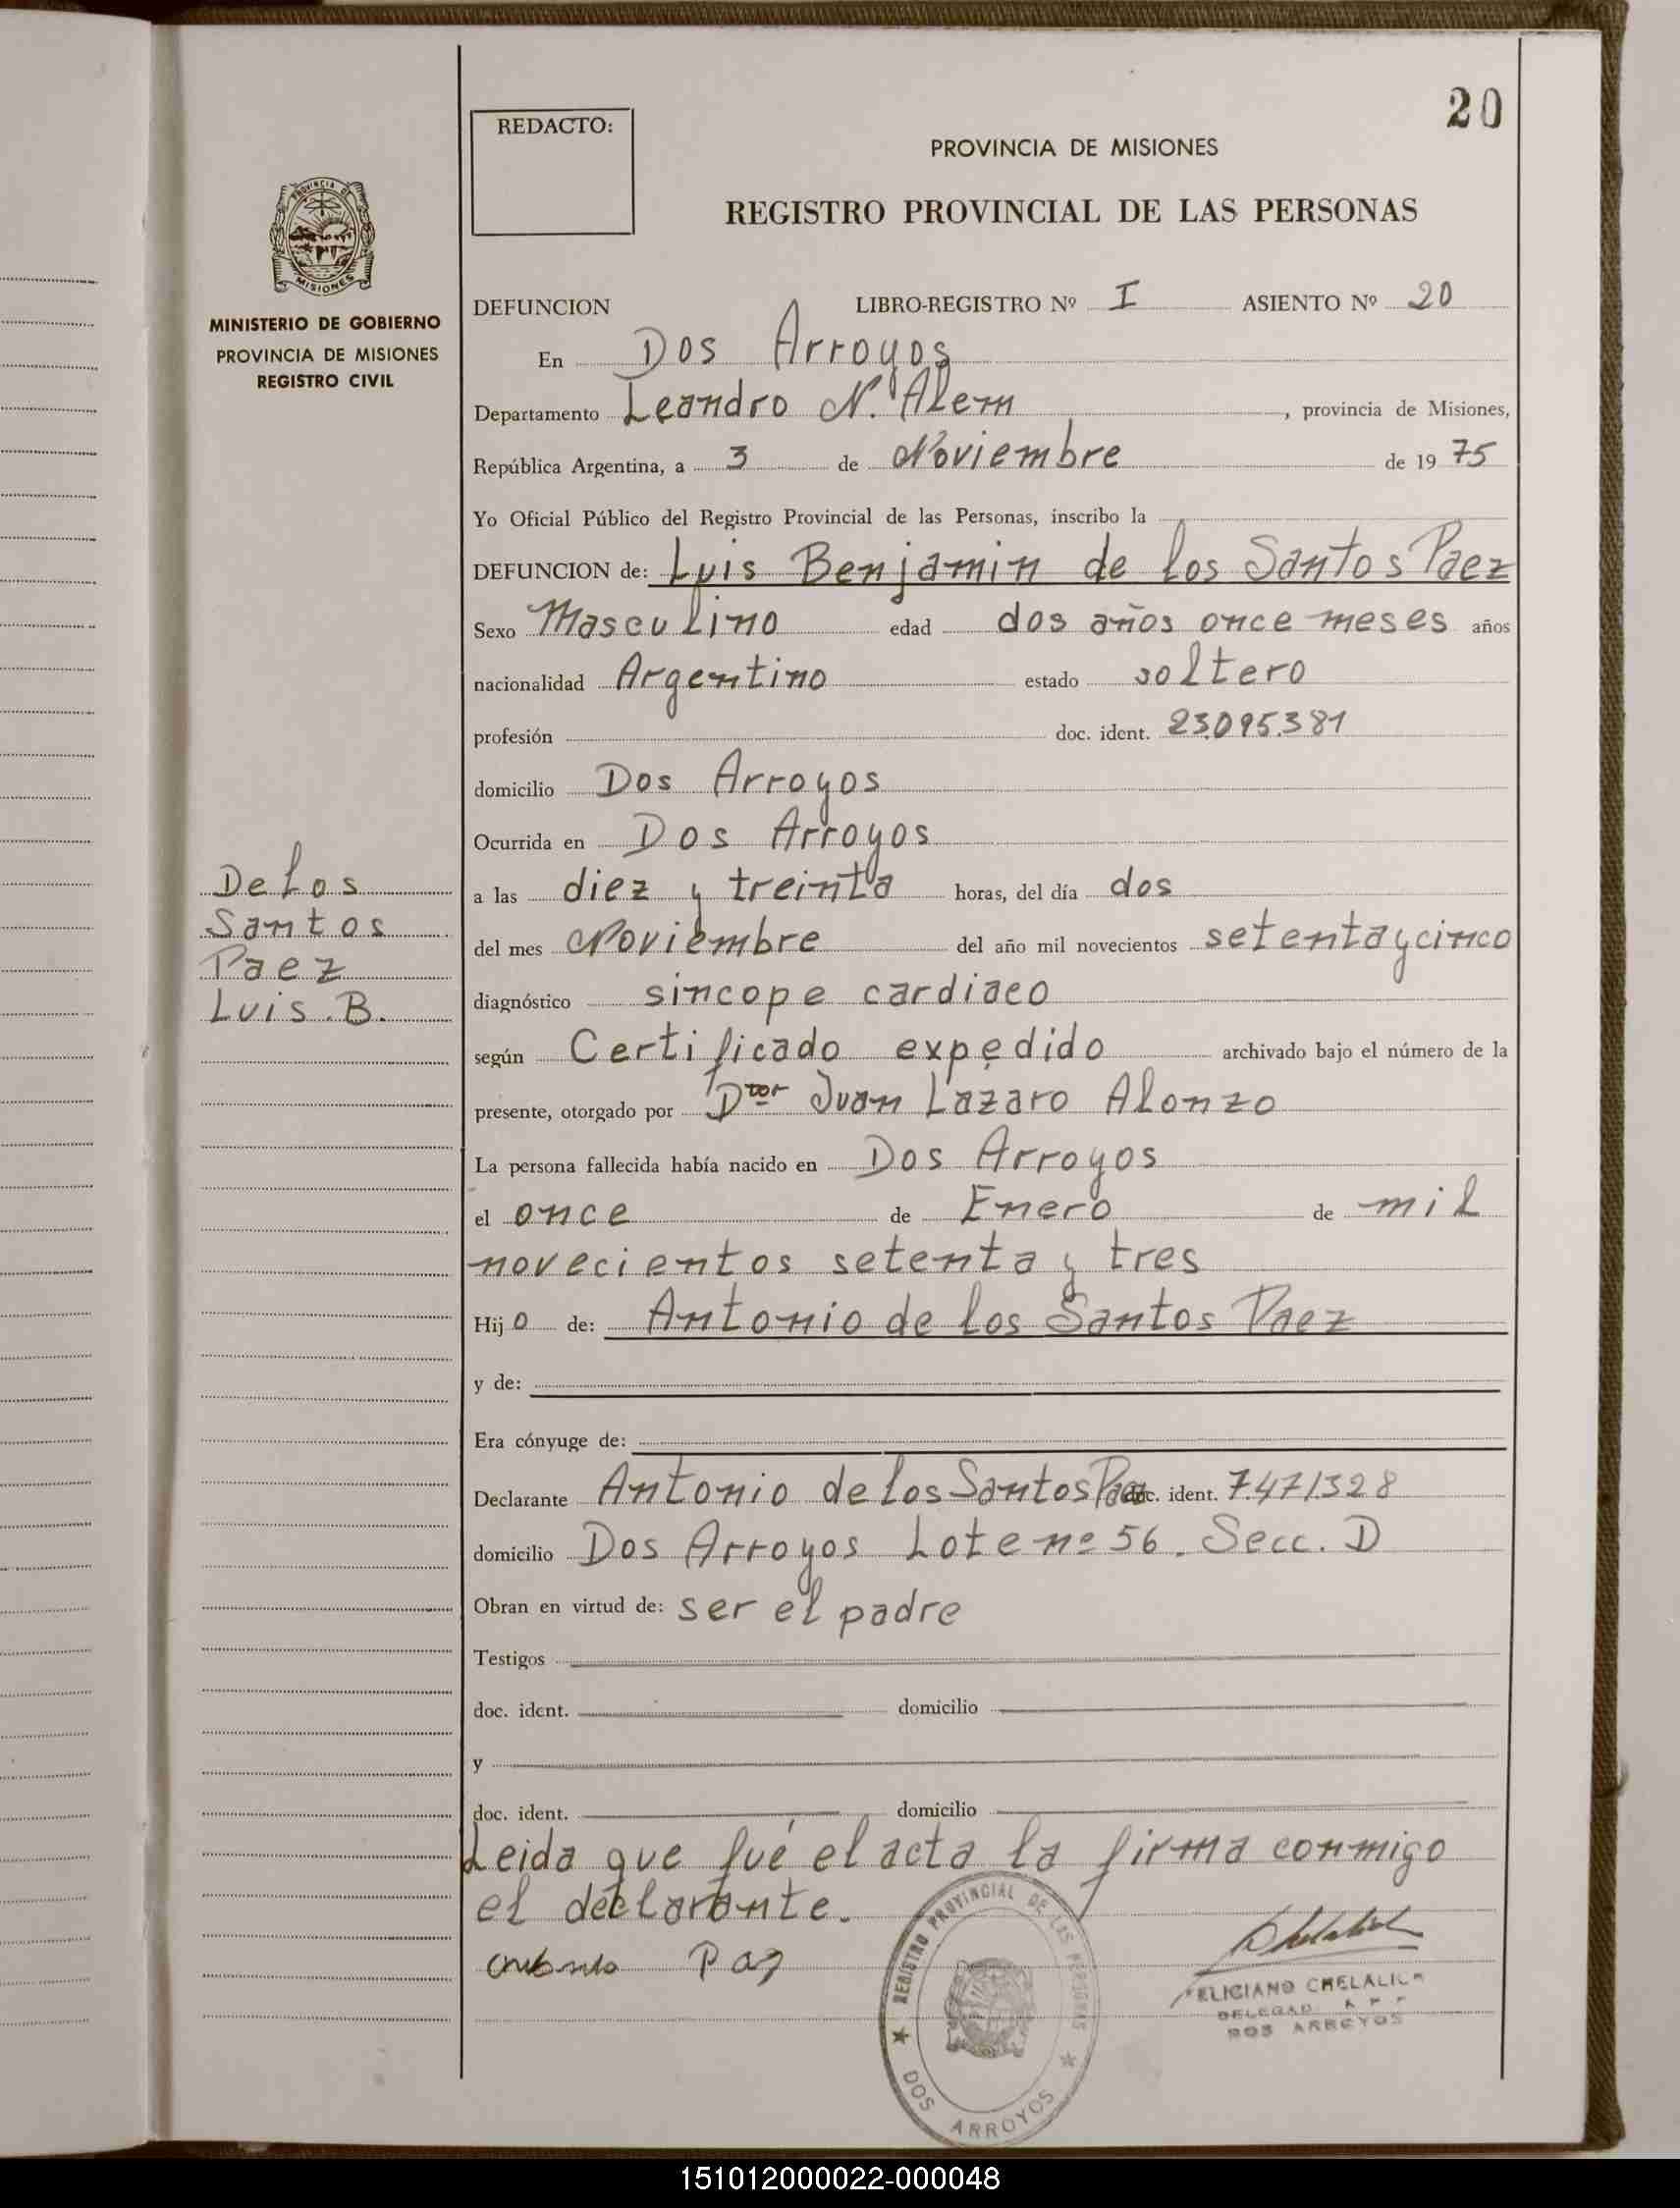 20
REDACTO:
PROVINCIA DE MISIONES
REGISTRO PROVINCIAL DE LAS PERSONAS
PROVINCIA DE
MISIONES
MINISTERIO DE GOBIERNO
PROVINCIA DE MISIONES
REGISTRO CIVIL
DEFUNCION LIBRO-REGISTRO Nº I ASIENTO Nº 20
En Dos Arroyos
Departamento Leandro N. Alem, provincia de Misiones,
República Argentina, a 3 de Noviembre de 1975
Yo Oficial Público del Registro Provincial de las Personas, inscribo la
DEFUNCION de: Luis Benjamin de los Santos Paez
Sexo Masculino edad dos años once meses años
nacionalidad Argentino estado soltero
profesión doc. ident. 23.095.381
domicilio Dos Arroyos
Ocurrida en Dos Arroyos
a las diez y treinta horas, del día dos
del mes Noviembre del año mil novecientos setenta y cinco
diagnóstico sincope cardiaco
según Certificado expedido archivado bajo el número de la
presente, otorgado por Dtor Juan Lazaro Alonzo
La persona fallecida había nacido en Dos Arroyos
el once de Enero de mil
novecientos setenta y tres
Hijo de: Antonio de los Santos Paez
y de:
Era cónyuge de:
Declarante Antonio de los Santos Paez doc. ident. 7.471.328
domicilio Dos Arroyos Lote nº 56. Secc. D
Obran en virtud de: ser el padre
Testigos
doc. ident. domicilio
y
doc. ident. domicilio
Leida que fué el acta la firma conmigo
el declarante.
De los
Santos
Paez
Luis. B.
REGISTRO PROVINCIAL DE LAS PERSONAS
DOS ARROYOS
FELICIANO CHELALICH
DOS ARROYOS
151012000022-000048